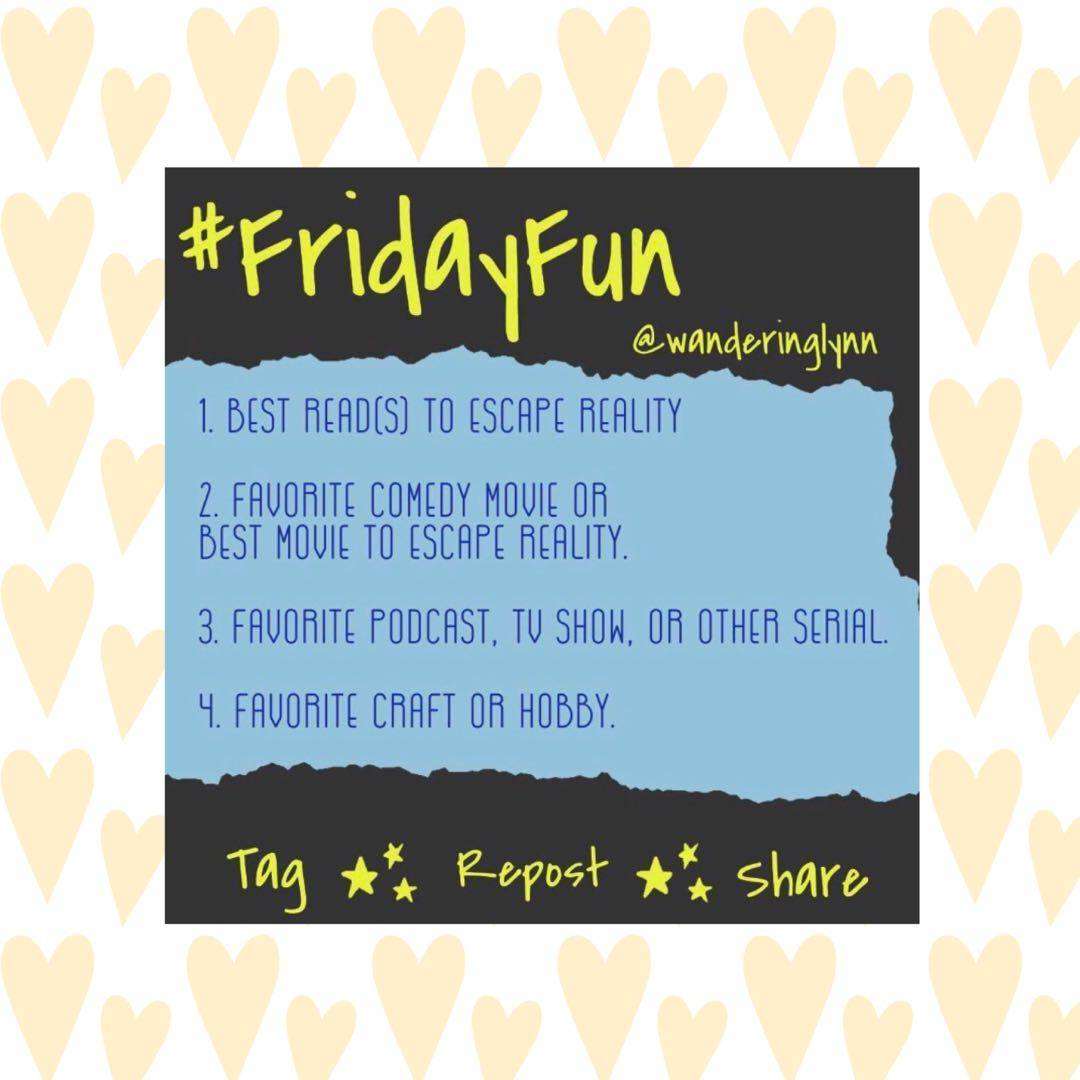 #FridayFun
@wanderinglynn
1. BEST READ(S) TO ESCAPE REALITY
2. FAVORITE COMEDY MOVIE OR
BEST MOVIE TO ESCAPE REALITY.
3. FAVORITE PODCAST, TV SHOW, OR OTHER SERIAL.
4. FAVORITE CRAFT OR HOBBY.
Tag Repost Share